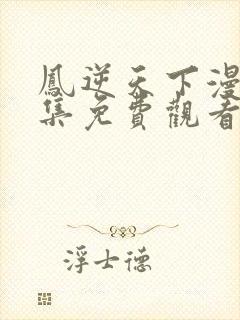 鳳逆天下漫
集免費觀看
浮士德